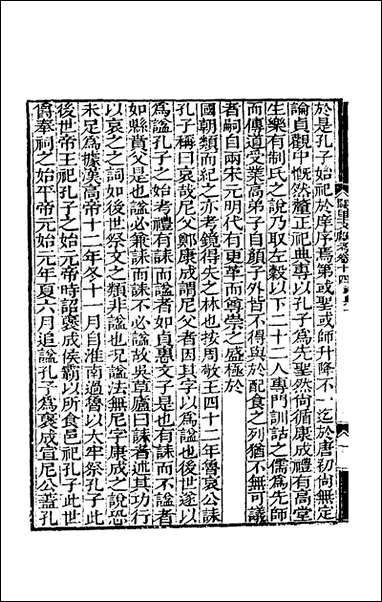 於是孔子始祀於庠序焉第或聖或師升降不一迄於唐初尙無定
論貞觀中慨然釐正祀典專以孔子為先聖然尙循康成禮有高堂
生樂有制氏之說乃取左穀以下二十二人專門訓詁之儒為先師
而傳道受業高弟子自顏子外皆不得與於配食之列猶不無可議
者嗣自兩宋元明代有更革而尊崇之盛極於
國朝類而紀之亦考鏡得失之林也按周敬王四十二年魯哀公誄
孔子稱曰哀哉尼父鄭康成謂尼父者因其字以為諡也後世遂以
為諡孔子之始考禮有誄而諡者如貞惠文子是也有誄而不諡者
如縣賁父是也諡必兼誄而誄不必諡故吳草廬曰誄者述其功行
以哀之之詞如後世祭文之類非諡也況諡法無尼字康成之說恐
未足為據漢高帝十二年冬十一月自淮南過魯以大牢祭孔子此
後世帝王祀孔子之始元帝時詔褒成侯霸以所食邑祀孔子此世
爵奉祀之始平帝元始元年夏六月追諡孔子為褒成宣尼公蓋孔